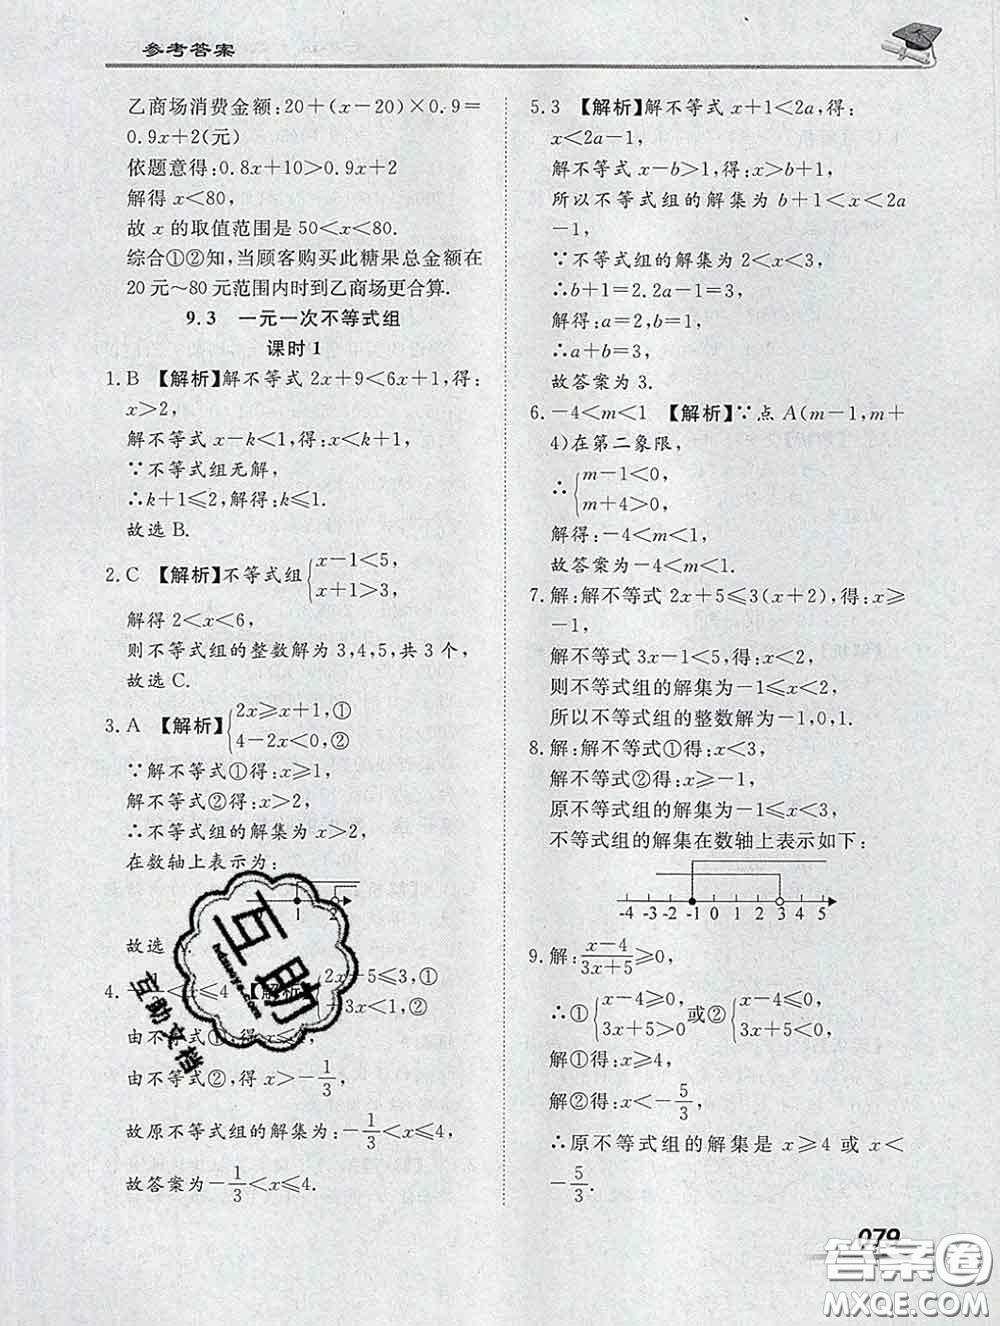 参考答案
乙商场消费金额:20+(x-20)×0.9=
0.9x+2(元)
依题意得:0.8x+10>0.9x+2
解得 x<80,
故 x 的取值范围是 50<x<80.
综合①②知,当顾客购买此糖果总金额在
20 元~80 元范围内时到乙商场更合算.
9.3 一元一次不等式组
课时 1
1. B 【解析】解不等式 2x+9<6x+1,得:
x>2,
解不等式 x-k<1,得:x<k+1,
∵不等式组无解,
∴k+1≤2,解得:k≤1.
故选 B.
2. C 【解析】不等式组{x-1<5,
x+1>3,
解得 2<x<6,
则不等式组的整数解为 3,4,5,共 3 个,
故选 C.
3. A 【解析】{2x≥x+1,①
4-2x<0,②
∵解不等式①得:x≥1,
解不等式②得:x>2,
∴不等式组的解集为 x>2,
在数轴上表示为:
1 2
故选
4. <x≤4 【解析】{2x-5≤3,①
-3x<1②
由不等式①得:x≤4
由不等式②,得 x>-1/3,
故原不等式组的解集为:-1/3<x≤4,
故答案为-1/3<x≤4.
5. 3 【解析】解不等式 x+1<2a,得:
x<2a-1,
解不等式 x-b>1,得:x>b+1,
所以不等式组的解集为 b+1<x<2a
-1,
∵不等式组的解集为 2<x<3,
∴b+1=2,2a-1=3,
解得:a=2,b=1,
∴a+b=3,
故答案为 3.
6. -4<m<1 【解析】∵点 A(m-1,m+
4)在第二象限,
∴{m-1<0,
m+4>0,
解得:-4<m<1,
故答案为-4<m<1.
7. 解:解不等式 2x+5≤3(x+2),得:x≥
-1,
解不等式 3x-1<5,得:x<2,
则不等式组的解集为-1≤x<2,
所以不等式组的整数解为-1,0,1.
8. 解:解不等式①得:x<3,
解不等式②得:x≥-1,
原不等式组的解集为-1≤x<3,
不等式组的解集在数轴上表示如下:
-4 -3 -2 -1 0 1 2 3 4 5
9. 解:(x-4)/(3x+5)≥0,
∴①{x-4≥0 或②{x-4≤0
3x+5>0 3x+5<0,
解①得:x≥4,
解②得:x<-5/3,
∴原不等式组的解集是 x≥4 或 x<
-5/3.
079
互助
互助文档
答案圈
MXQE.COM